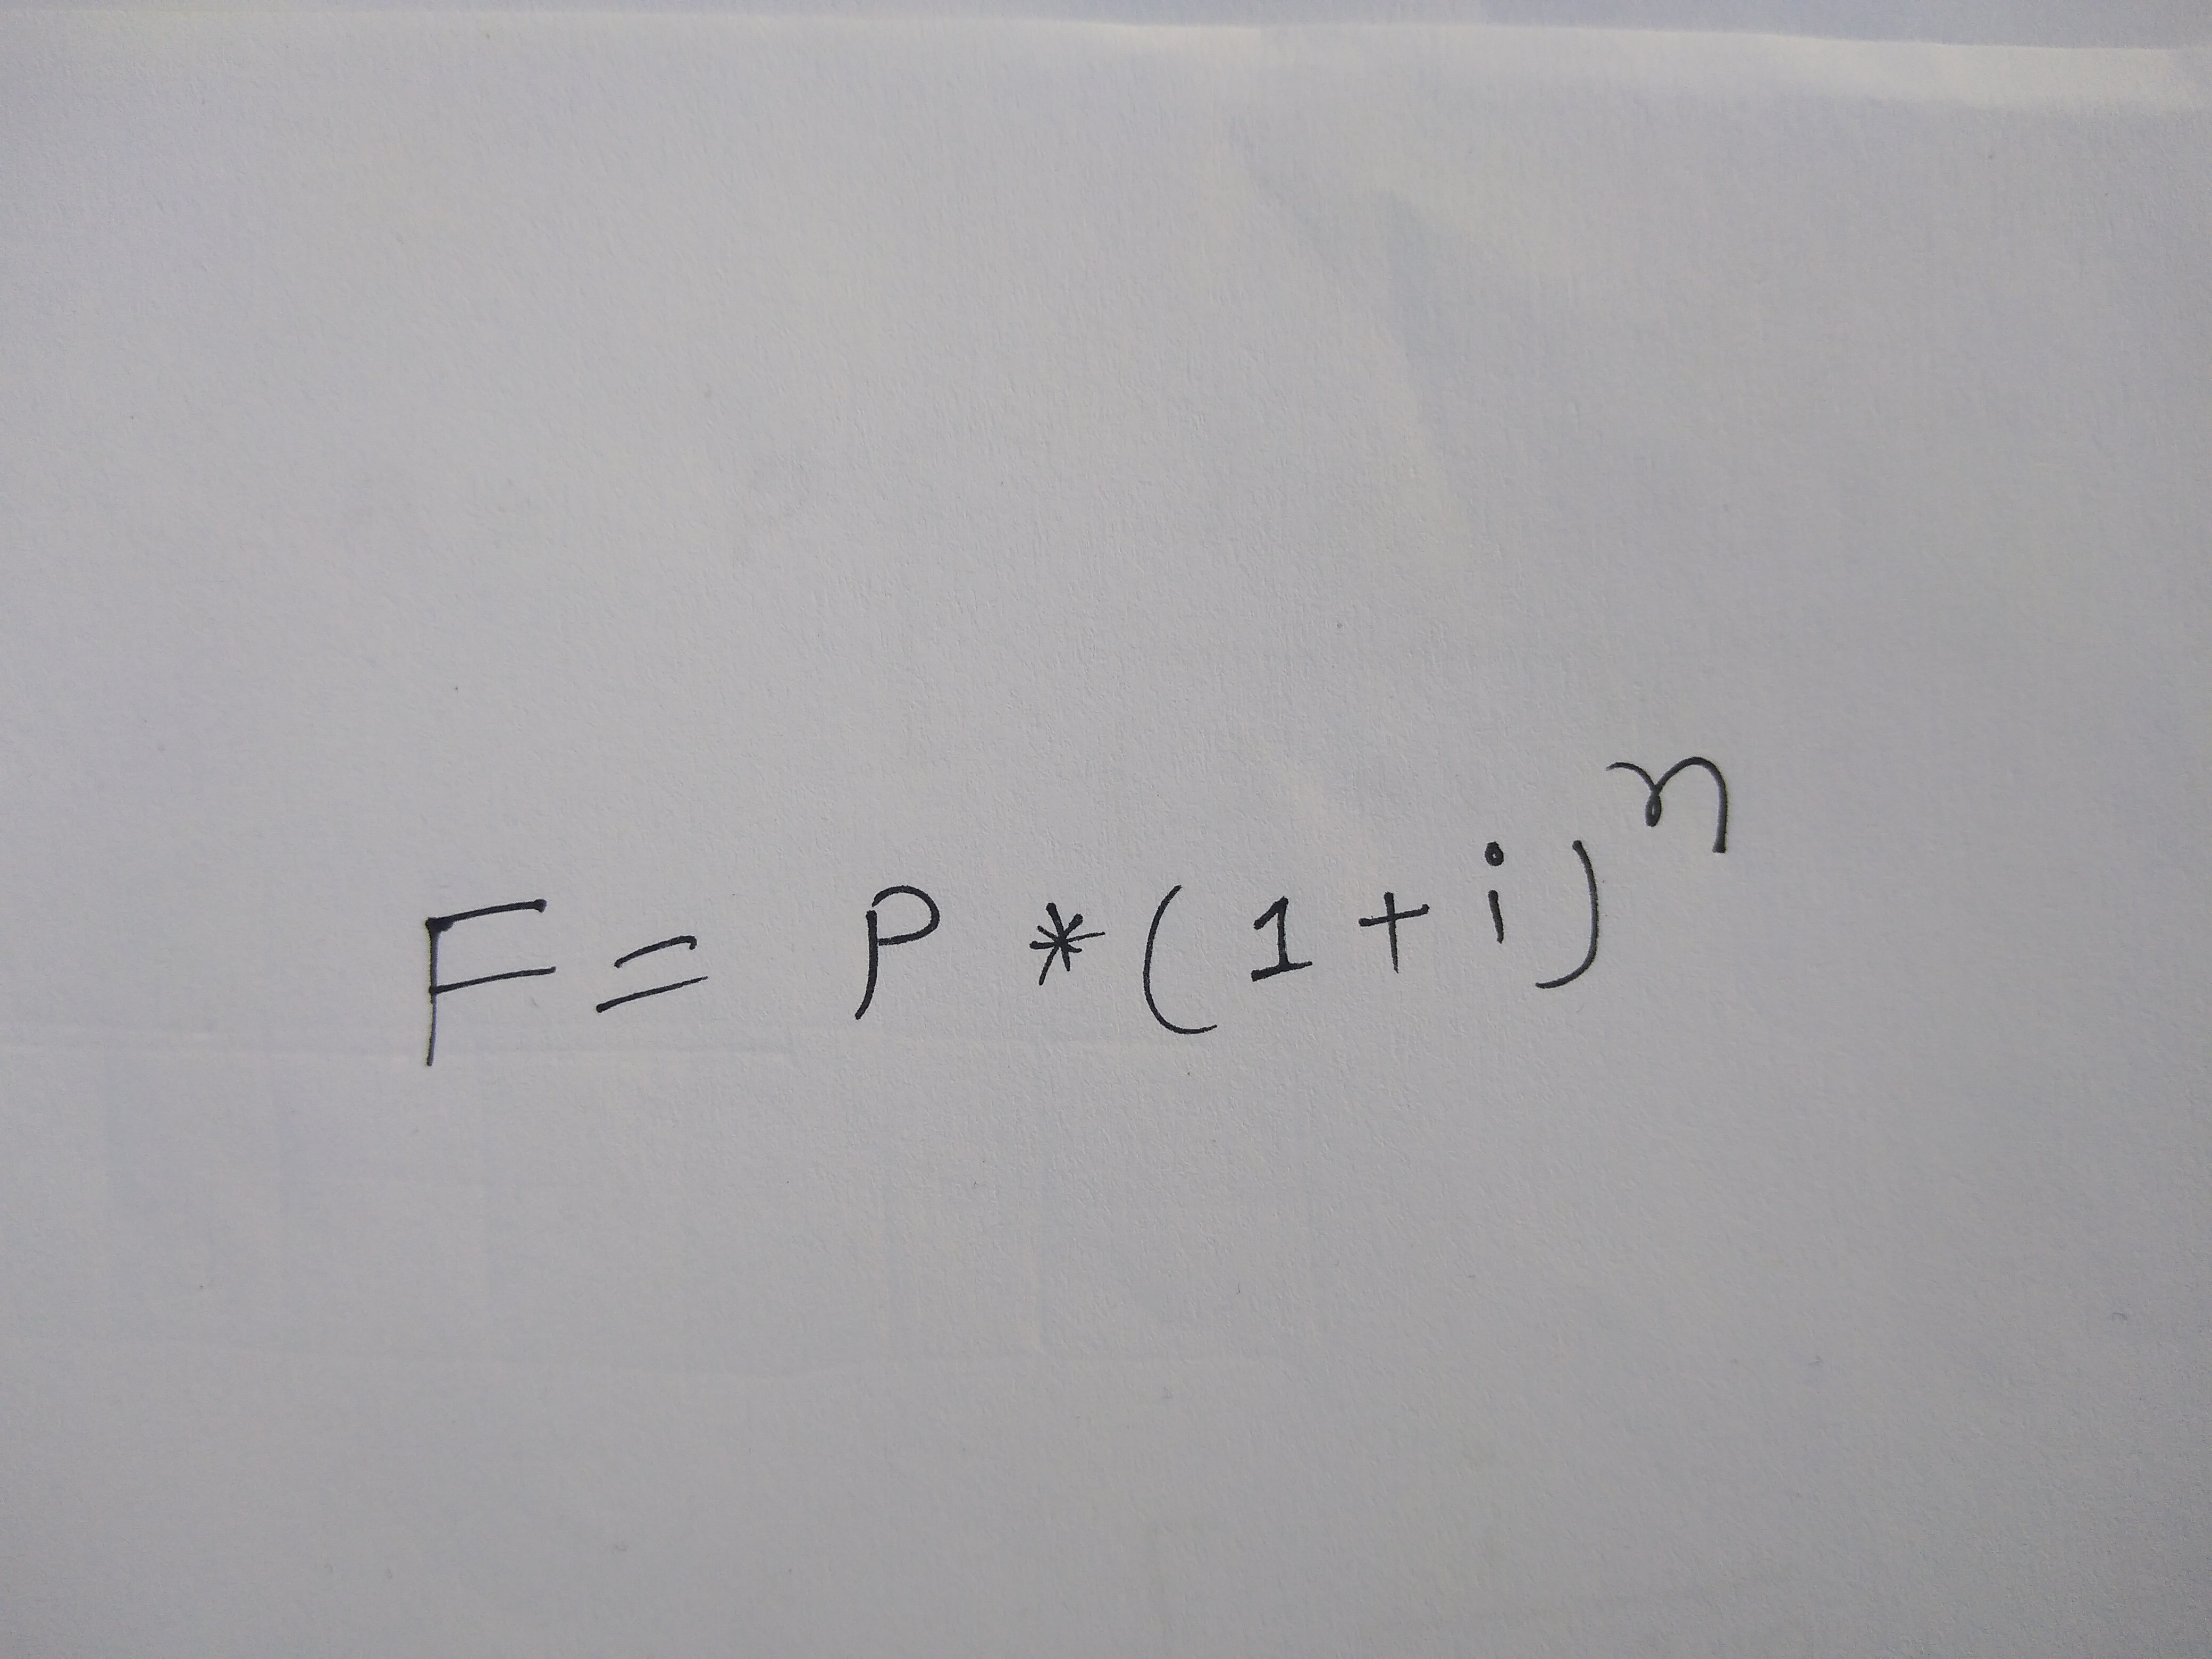 F = P * (1 + i)^n